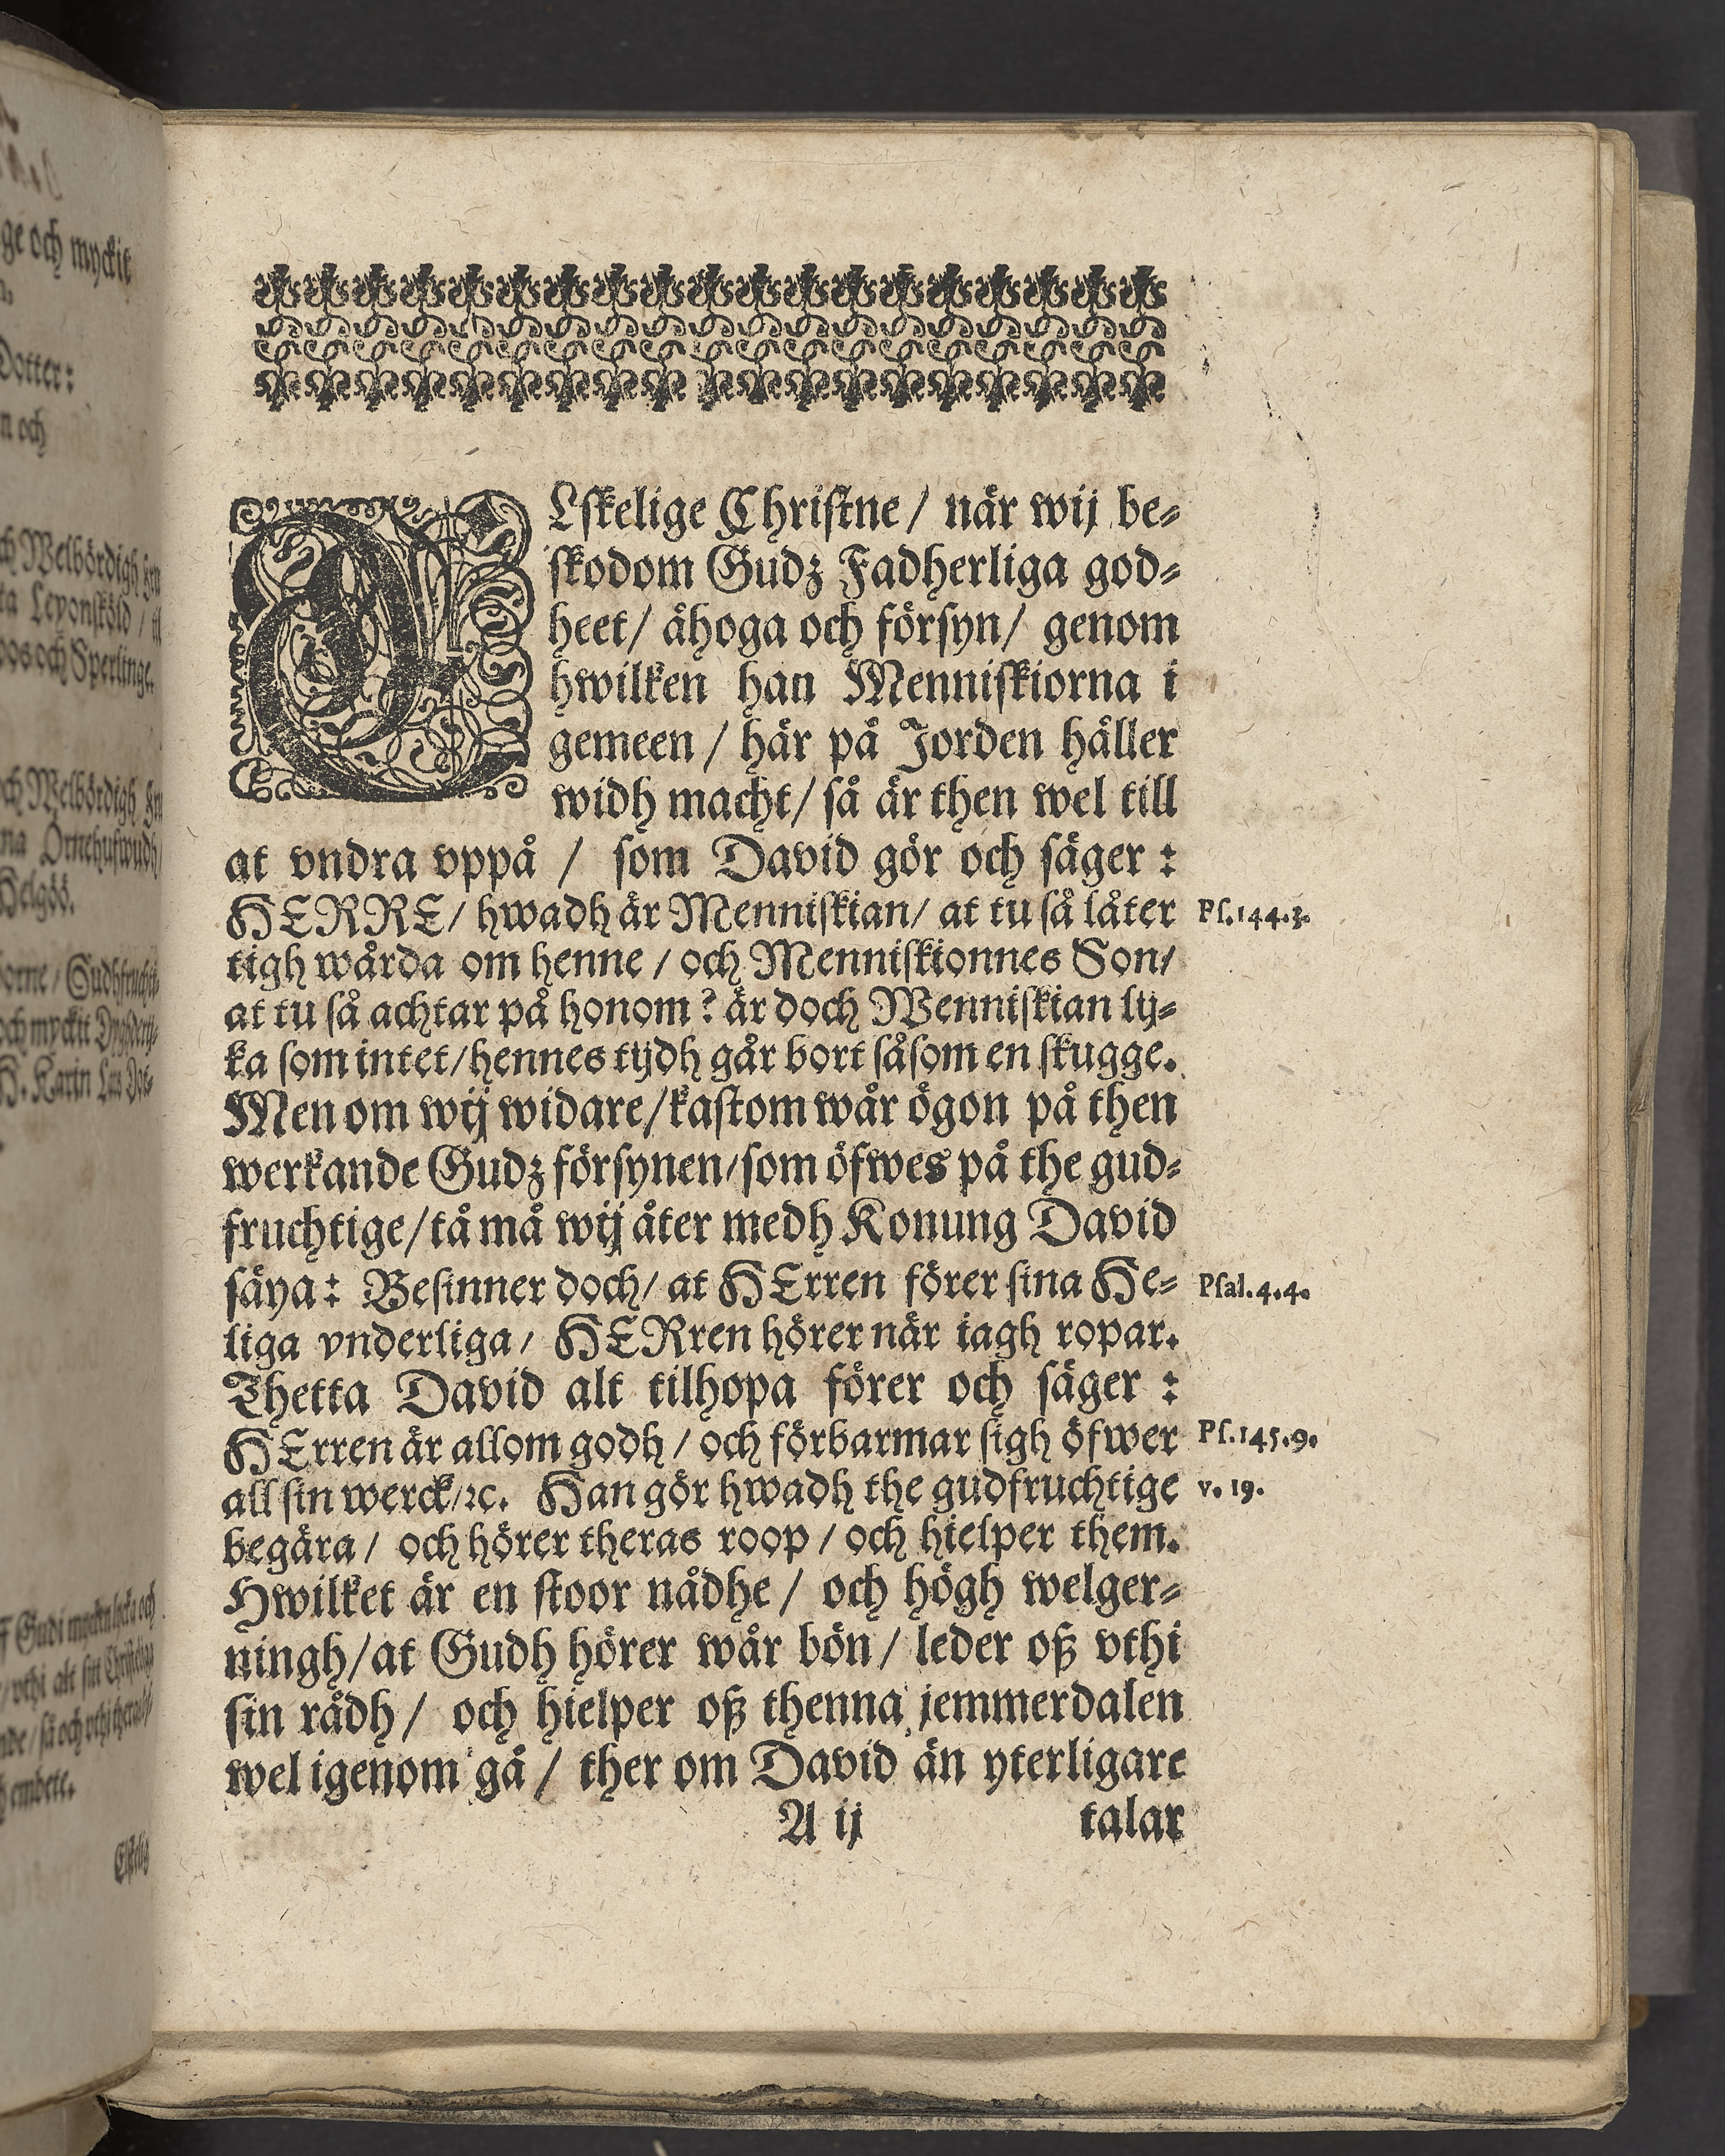 ge och myckit
Dotter:
n och
ch Welbördigh Fru
ta Leyonsköld / til
oos och Sperlinge.
och Welbördigh Fru
na Örnehufwudh
Helgöö.
orne / Gudhfruchti-
och myckit Dygderij-
H. Karin Lars Dot-
embete.
Elskelig
ELſkelige Chriſtne / när wij be-
ſkodom Gudz Fadherliga god-
heet / åhoga och förſyn / genom
hwilken han Menniſkiorna i
gemeen / här på Jorden håller
widh macht / ſå är then wel till
at vndra vppå / ſom David gör och ſäger :
HERRE / hwadh är Menniſkian / at tu ſå låter
tigh wårda om henne / och Menniſkionnes Son /
at tu ſå achtar på honom ? är doch Menniſkian lij-
ka ſom intet / hennes tijdh går bort ſåſom en ſkugge.
Men om wij widare / kaſtom wår ögon på then
werkande Gudz förſynen / ſom öfwes på the gud-
fruchtige / tå må wij åter medh Konung David
ſäya : Beſinner doch / at HErren förer ſina He-
liga vnderliga / HERren hörer när iagh ropar.
Thetta David alt tilhopa förer och ſäger :
HErren är allom godh / och förbarmar ſigh öfwer
all ſin werck / ꝛc. Han gör hwadh the gudfruchtige
begära / och hörer theras roop / och hielper them.
Hwilket är en ſtoor nådhe / och högh welger-
ningh / at Gudh hörer wår bön / leder oß vthi
ſin rådh / och hielper oß thenna jemmerdalen
wel igenom gå / ther om David än yterligare
A ij talar
Pſ. 144. 3.
Pſal. 4. 4.
Pſ. 145. 9.
v. 19.